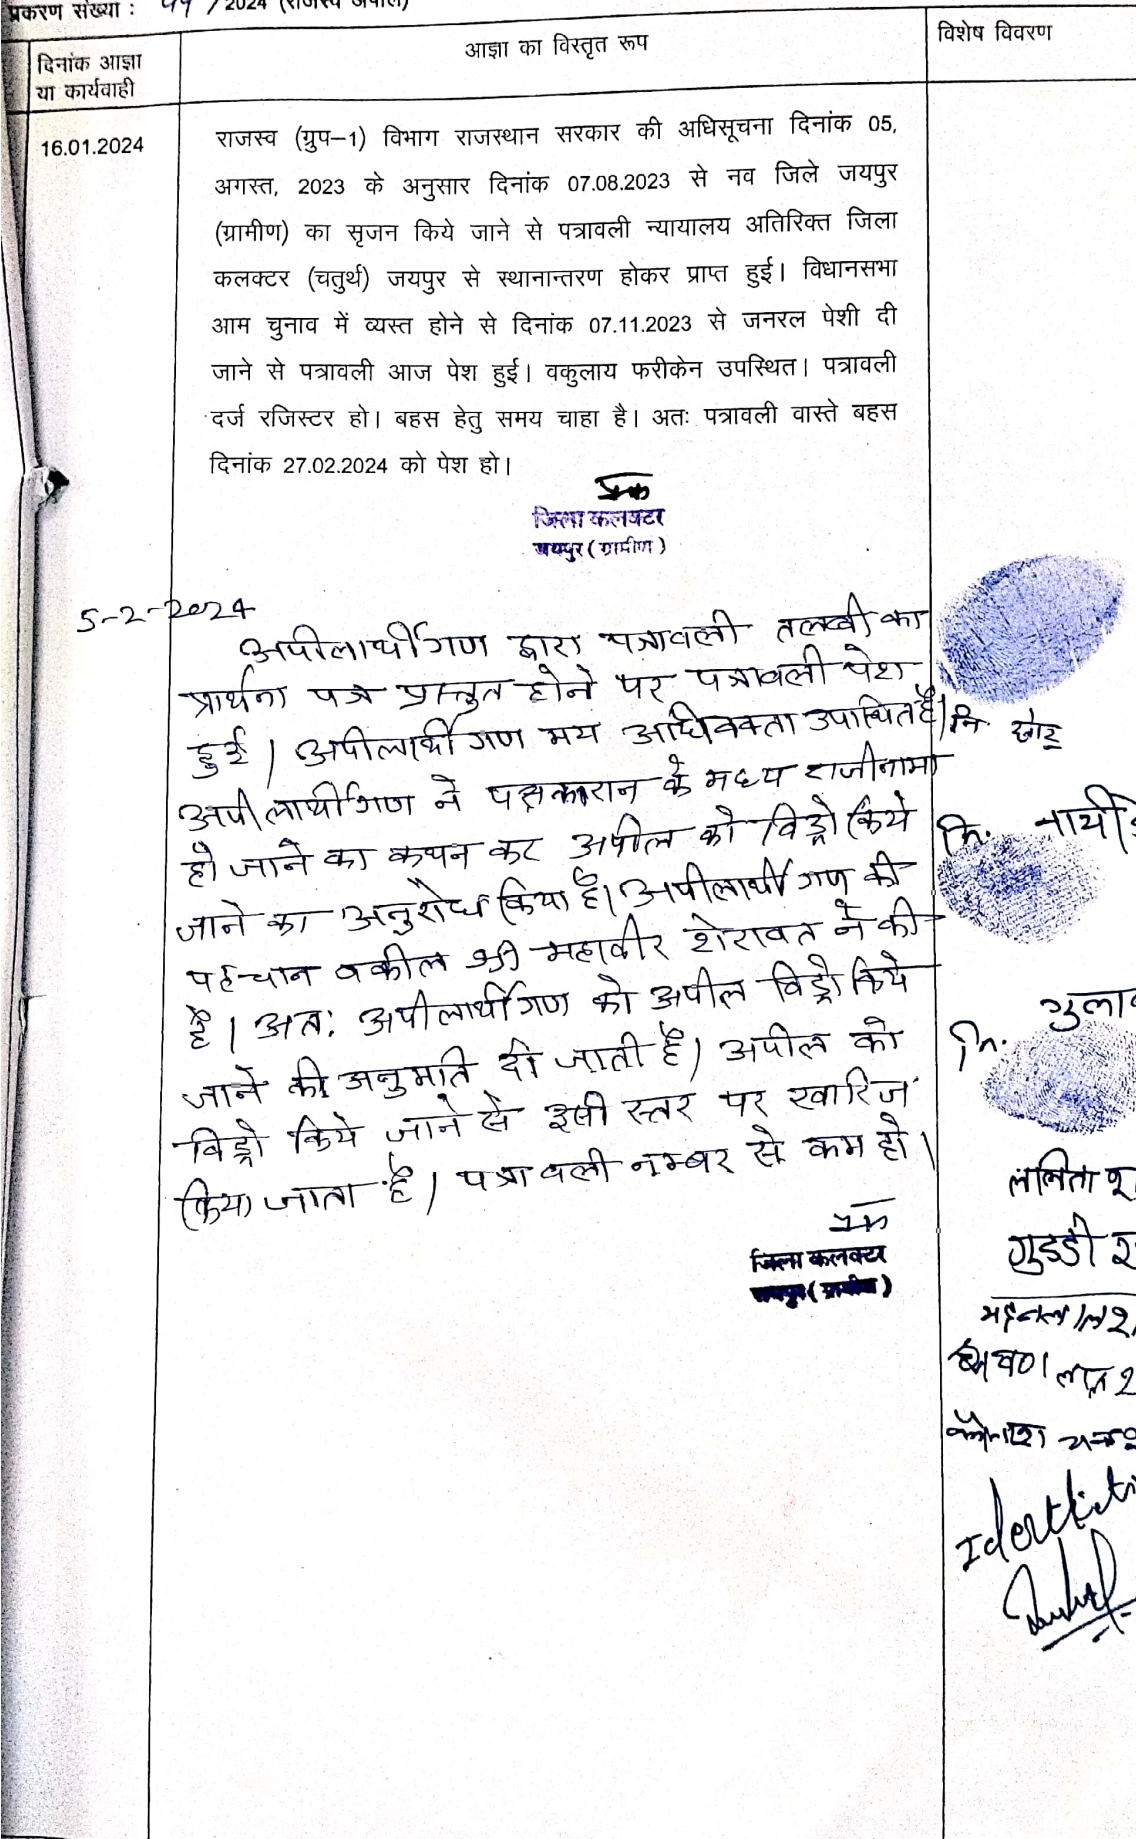 प्रकरण संख्या : /2024 (राजस्व अपील)
दिनांक आज्ञा
या कार्यवाही
आज्ञा का विस्तृत रूप
विशेष विवरण
16.01.2024
राजस्व (ग्रुप–1) विभाग राजस्थान सरकार की अधिसूचना दिनांक 05,
अगस्त, 2023 के अनुसार दिनांक 07.08.2023 से नव जिले जयपुर
(ग्रामीण) का सृजन किये जाने से पत्रावली न्यायालय अतिरिक्त जिला
कलक्टर (चतुर्थ) जयपुर से स्थानान्तरण होकर प्राप्त हुई। विधानसभा
आम चुनाव में व्यस्त होने से दिनांक 07.11.2023 से जनरल पेशी दी
जाने से पत्रावली आज पेश हुई। वकुलाय फरीकेन उपस्थित। पत्रावली
दर्ज रजिस्टर हो। बहस हेतु समय चाहा है। अतः पत्रावली वास्ते बहस
दिनांक 27.02.2024 को पेश हो।
जिला कलक्टर
जयपुर (ग्रामीण)
5-2-2024
अपीलार्थीगण द्वारा पत्रावली तलबी का
प्रार्थना पत्र प्रस्तुत होने पर पत्रावली पेश
हुई। अपीलार्थीगण मय अधिवक्ता उपस्थित है।
अपीलार्थीगण ने पक्षकारान के मध्य राजीनामा
हो जाने का कथन कर अपील को विड्रो किये
जाने का अनुरोध किया है। अपीलार्थीगण की
पहचान वकील श्री महावीर शेरावत ने की
है। अतः अपीलार्थीगण को अपील विड्रो किये
जाने की अनुमति दी जाती है। अपील को
विड्रो किये जाने से इसी स्तर पर खारिज
किया जाता है। पत्रावली नम्बर से कम हो।
जिला कलक्टर
जयपुर (ग्रामीण)
नि.
नि.
नि. गुलाब
ललिता
गुड्डी